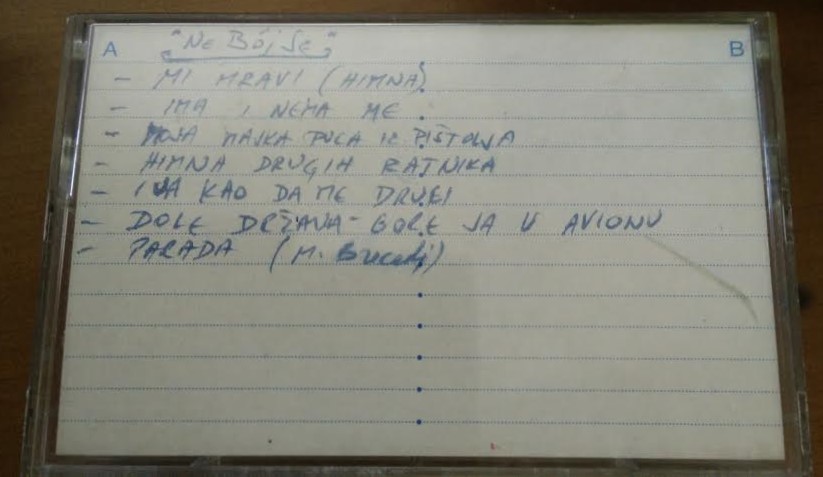 A "Ne Bój Se" B
- MI MRAVI (HIMNA)
- IMA I NEMA ME
- MOJA MAJKA PUCA IZ PIŠTOLJA
- HIMNA DRUGIH RATNIKA
- I JA KAO DA ME DRUGI
- DOLE DRŽAVA - GORE JA U AVIONU
- PARADA (M.